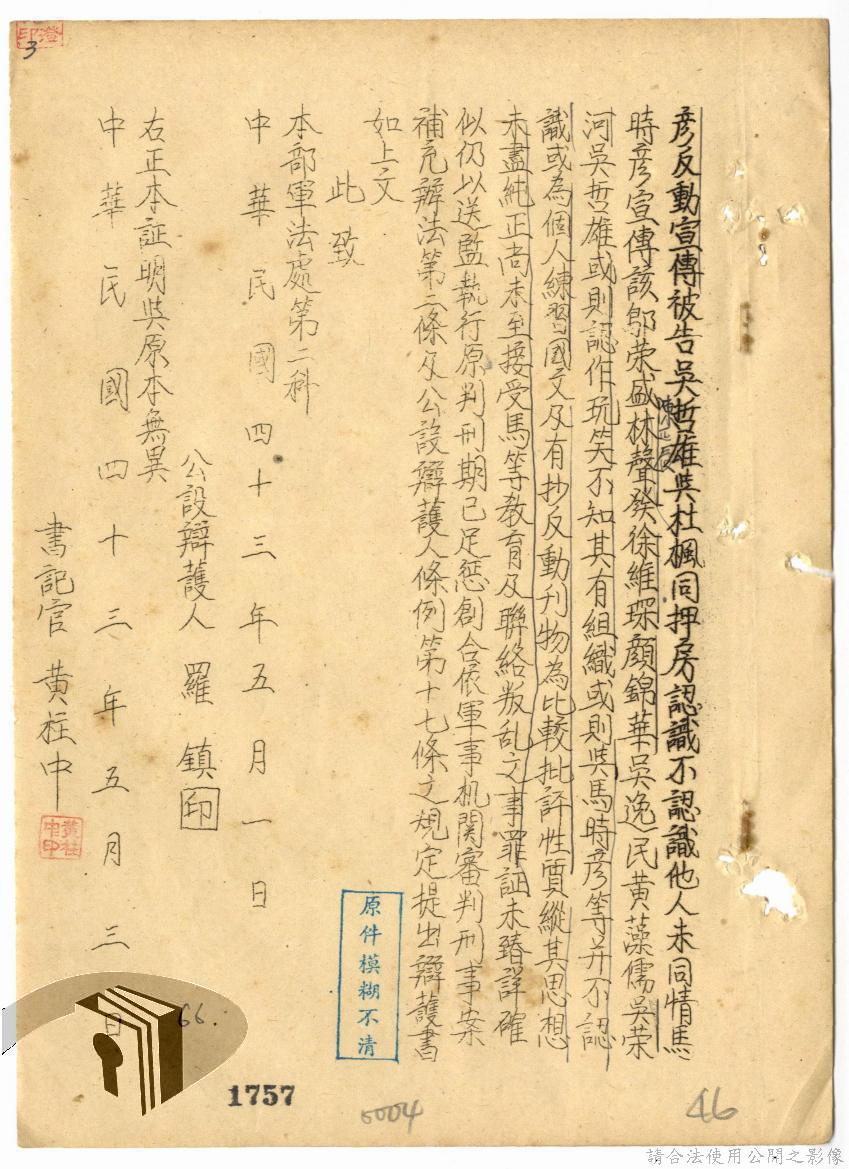 彦反動宣傳被告吳哲雄吳杜楓同押房認識不認識他人未同情馬
時彦宣傳該鄔荣盛林聲發徐維琛顔錦華吳逸民黃藻儒吳荣
河吳哲雄或則認作玩笑不知其有組織或則與馬時彦等并不認
識或為個人練習國文及有抄反動刊物為比較批評性質縱其思想
未盡純正尚未至接受馬等教育及聯絡叛乱之事罪証未臻詳確
似仍以送監執行原判刑期已足惩創合依軍事机関審判刑事案
補充辦法第二條及公設辯護人條例第十七條之規定提出辯護書
如上文
此致
本部軍法處第二科
中華民國四十三年五月一日
公設辯護人 羅鎮 印
右正本証明與原本無異
中華民國四十三年五月三日
書記官 黃柱中
黃柱中印
原件模糊不清
3
66.
1757
0004
46
請合法使用公開之影像